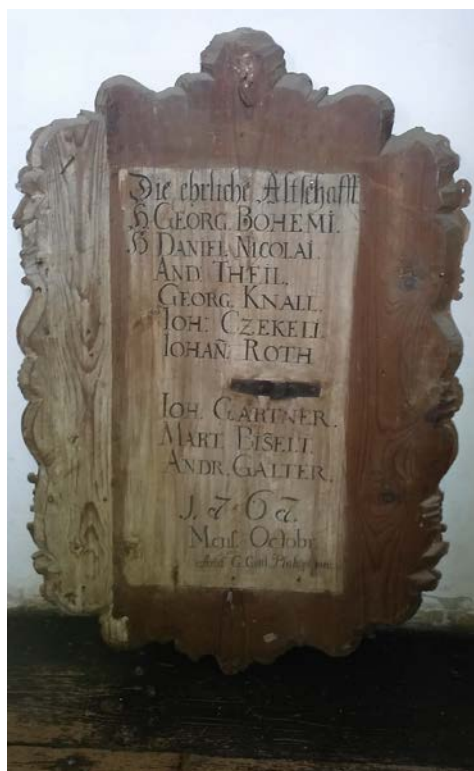 Die ehrliche Altschafft
H GEORG. BOHEMI.
H DANIEL NICOLAI.
AND THEIL.
GEORG. KNALL.
IOH: CZEKELI.
IOHAÑ ROTH
IOH. GARTNER.
MART. BISELT.
ANDR. GALTER.
1767.
Mens. Octobr